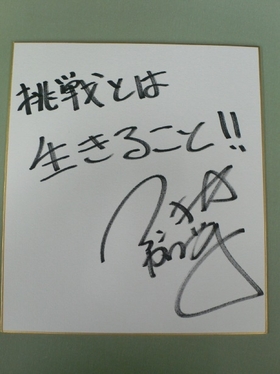 挑戦とは
生きること!!